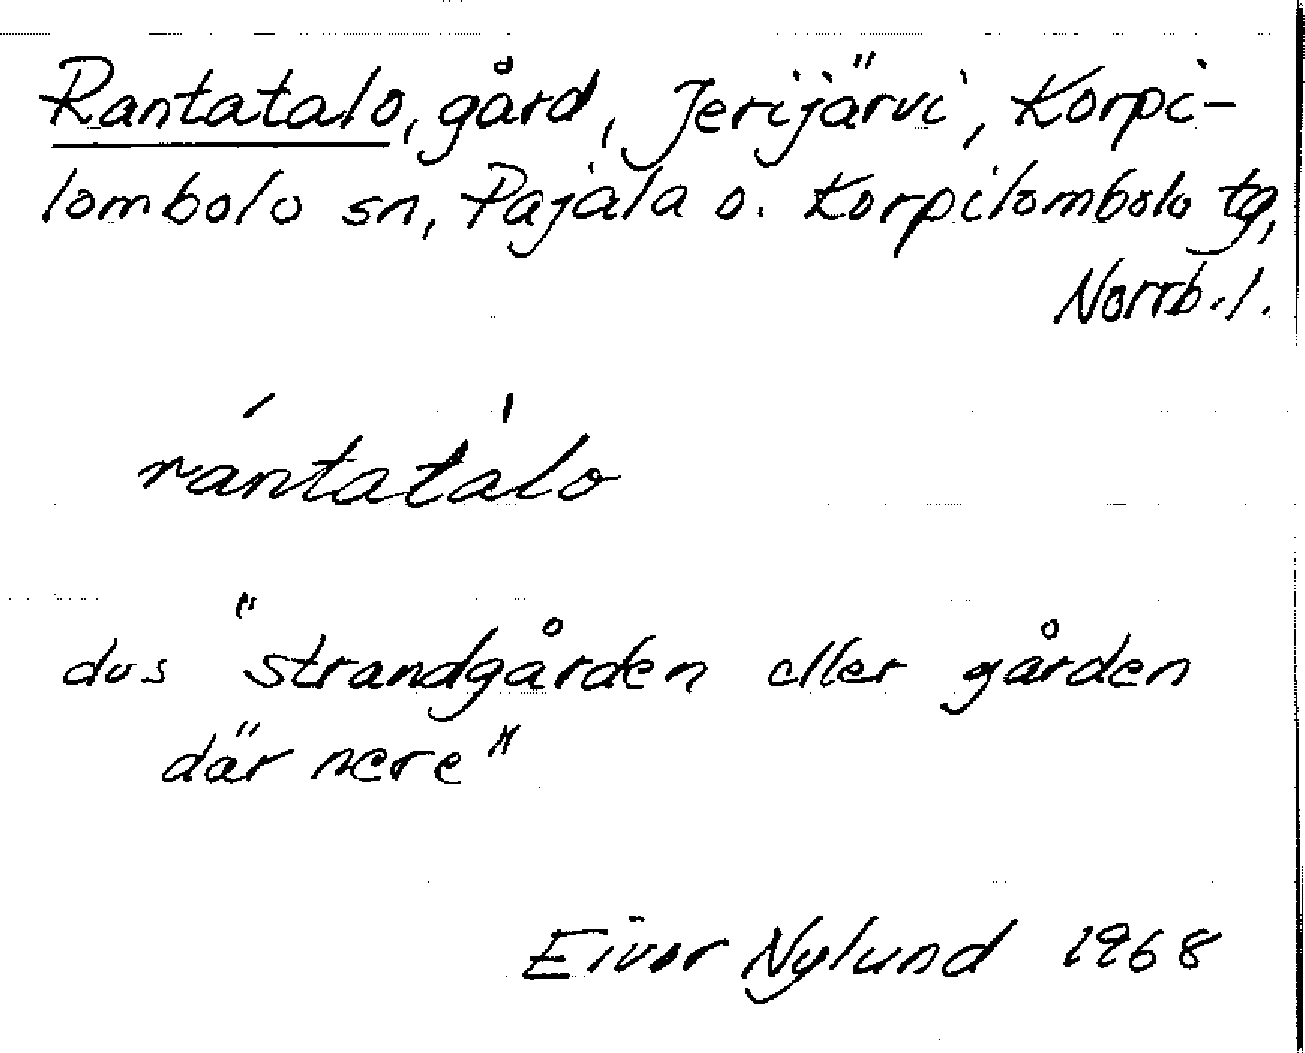 Rantatalo, gård, Jerijärvi, Korpi-
lombolo sn, Pajala o. Korpilombolo tg,
Norrb. l.
rántatàlo
dvs "strandgården eller gården
där nere"
Eivor Nylund 1968